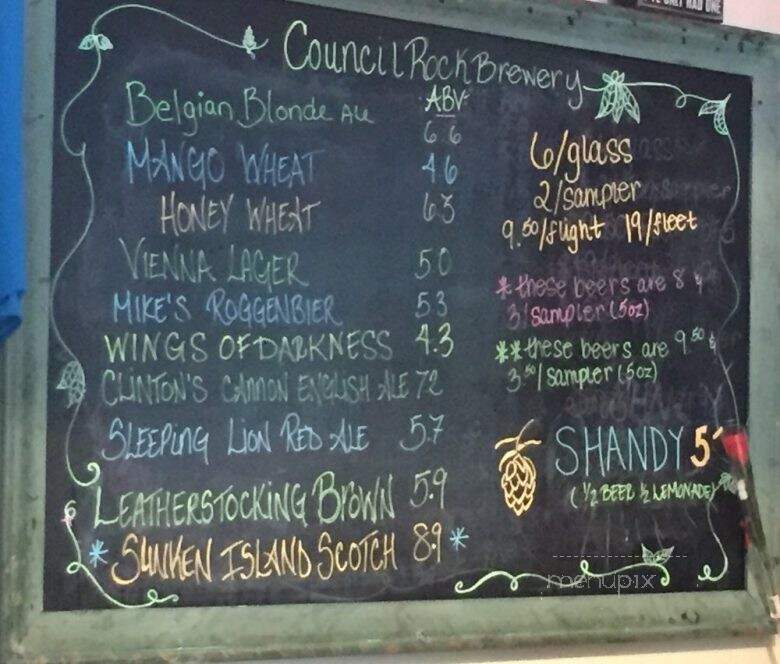 Council Rock Brewery
ABV
Belgian Blonde Ale 6.6
MANGO WHEAT 4.6
HONEY WHEAT 6.3
VIENNA LAGER 5.0
MIKE'S ROGGENBIER 5.3
WINGS OF DARKNESS 4.3
CLINTON'S CANNON ENGLISH ALE 7.2
SLEEPING LION RED ALE 5.7
LEATHERSTOCKING BROWN 5.9
* SUNKEN ISLAND SCOTCH 8.9 *
6/glass
2/sampler
9.50/flight 19/fleet
* these beers are 8 &
3/sampler (5oz)
** these beers are 9.50 &
3.50/sampler (5oz)
SHANDY 5
(1/2 BEER 1/2 LEMONADE)
menupix